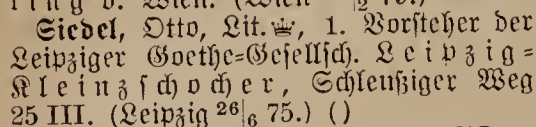 Siedel, Otto, Lit. 1. Vorsteher der
Leipziger Goethe=Gesellsch. Leipzig=
Kleinzschocher, Schleußiger Weg
25 III. (Leipzig 26|6 75.) ()